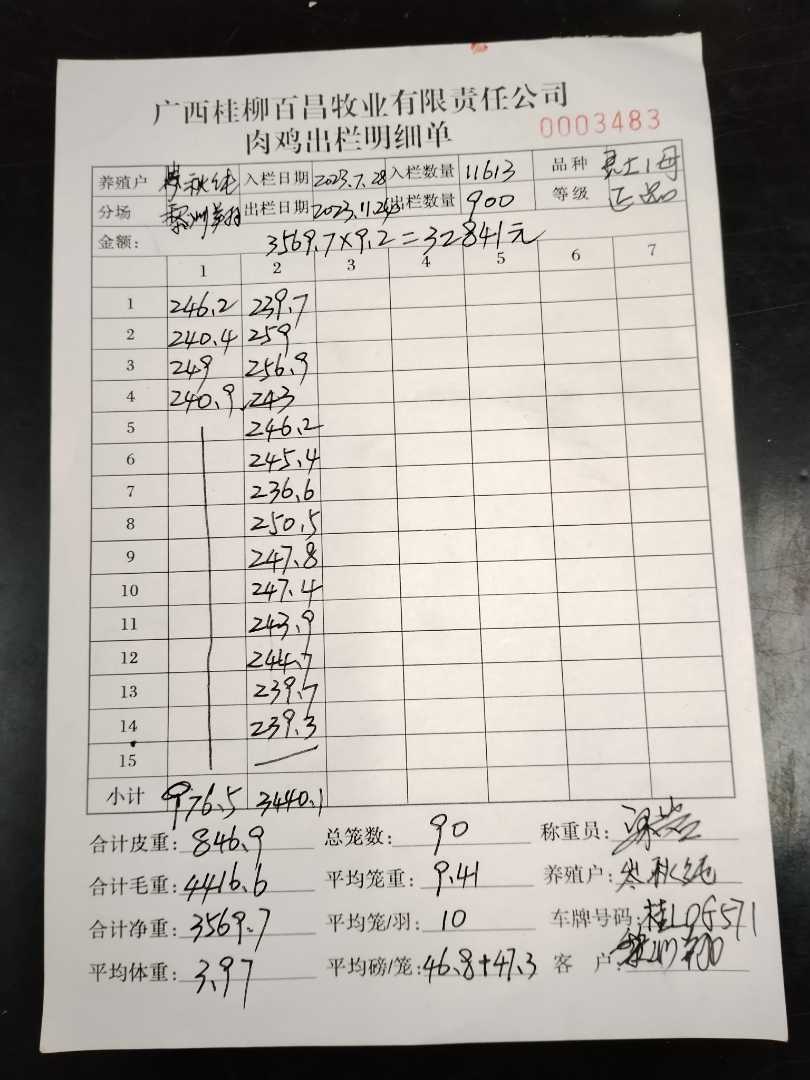 广西桂柳百昌牧业有限责任公司
肉鸡出栏明细单 0003483
养殖户 秋纯 入栏日期 2023.7.28 入栏数量 11613 品种 1母
分场 出栏日期 2023.11.24 出栏数量 900 等级 正品
金额: 3569.7×9.2=32841元
1 2 3 4 5 6 7
1 246.2 239.7
2 240.4 259
3 249 256.9
4 240.9 243
5 246.2
6 245.4
7 236.6
8 250.5
9 247.8
10 247.4
11 243.9
12 244.7
13 239.7
14 239.3
15
小计 976.5 3440.1
合计皮重: 846.9 总笼数: 90 称重员:
合计毛重: 4416.6 平均笼重: 9.41 养殖户: 秋纯
合计净重: 3569.7 平均笼/羽: 10 车牌号码: 桂L0G571
平均体重: 3.97 平均磅/笼: 46.8+47.3 客 户: